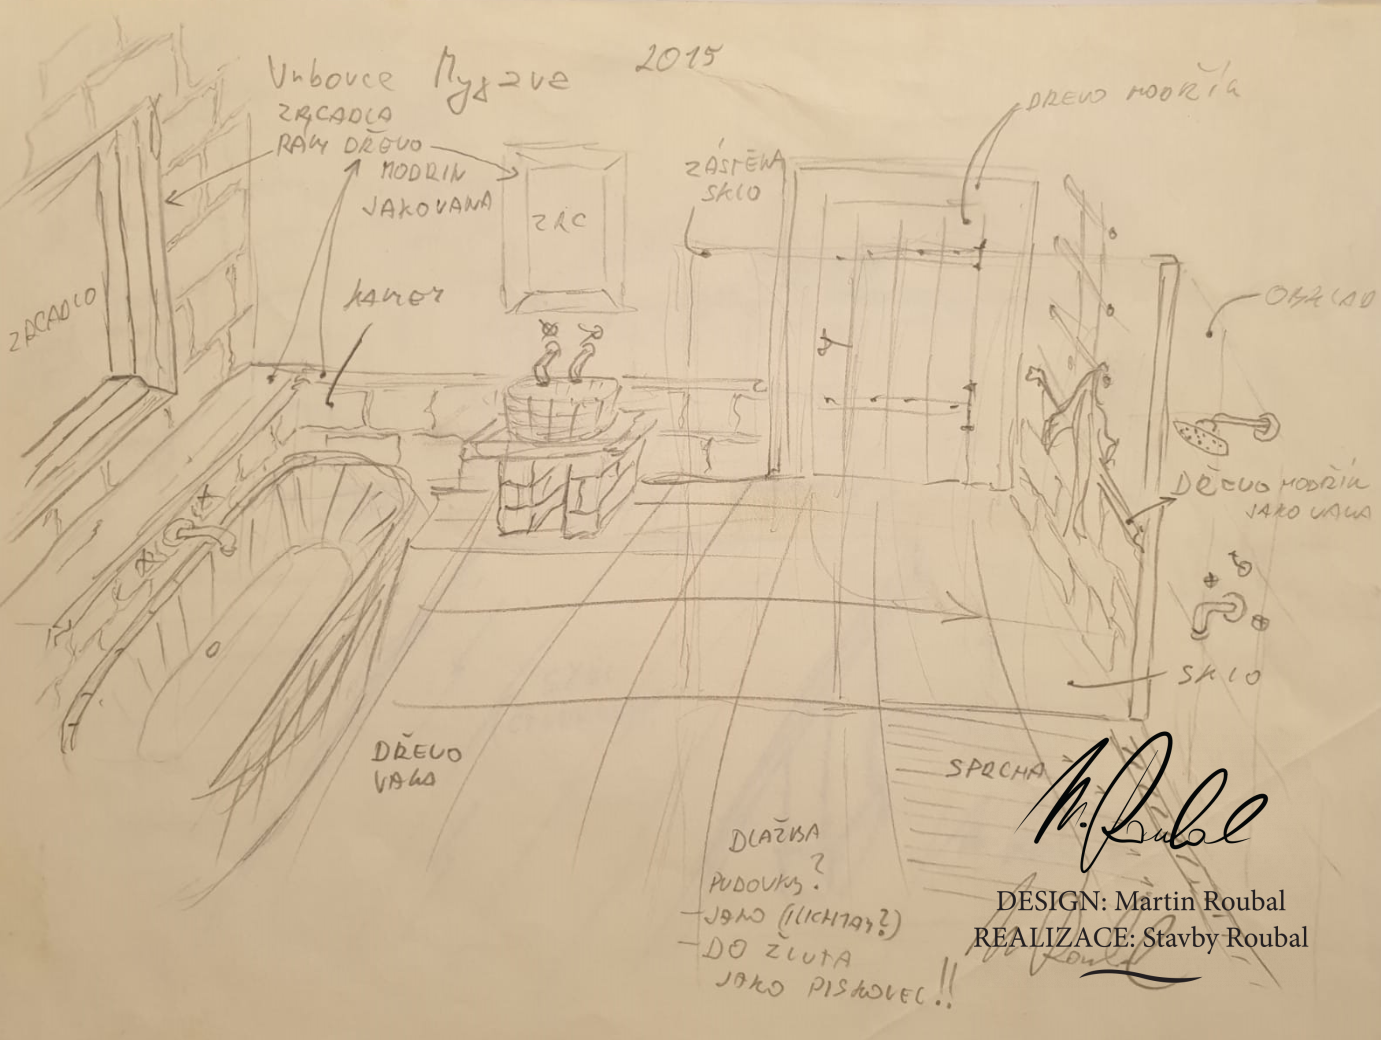 Vrbovce Myjava 2015
ZRCADLA
RÁM DŘEVO
MODRIN
JAKOVANA
ZRC
ZÁSTĚNA
SKLO
DREVO MODŘÍN
ZRCADLO
KAMEN
OBKLAD
DŘEVO MODŘÍN
JAKOVANA
SKLO
DŘEVO
VANA
SPRCHA
DLAŽBA
PUDOVKY?
- JAKO
- DO ŽLUTA
JAKO PISKOVEC!!
M. Roubal
DESIGN: Martin Roubal
REALIZACE: Stavby Roubal
M. Roubal